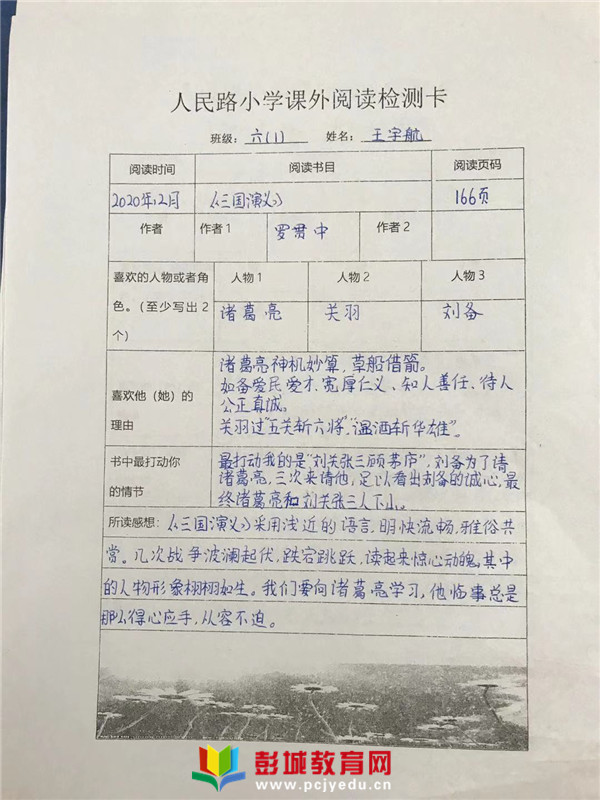 人民路小学课外阅读检测卡
班级：六(1) 姓名：王宇航
阅读时间 阅读书目 阅读页码
2020年12月 《三国演义》 166页
作者 作者1 罗贯中 作者2
喜欢的人物或者角色。（至少写出2个） 人物1 人物2 人物3
诸葛亮 关羽 刘备
喜欢他（她）的理由
诸葛亮神机妙算，草船借箭。
如备爱民爱才、宽厚仁义、知人善任、待人
公正真诚。
关羽过“五关斩六将”，“温酒斩华雄”。
书中最打动你的情节
最打动我的是“刘关张三顾茅庐”，刘备为了请
诸葛亮，三次来请他，足以看出刘备的诚心，最
终诸葛亮和刘关张三人下山。
所读感想：《三国演义》采用浅近的语言，明快流畅，雅俗共
赏。几次战争波澜起伏，跌宕跳跃，读起来惊心动魄，其中
的人物形象栩栩如生。我们要向诸葛亮学习，他临事总是
那么得心应手，从容不迫。
彭城教育网
www.pcjyedu.cn